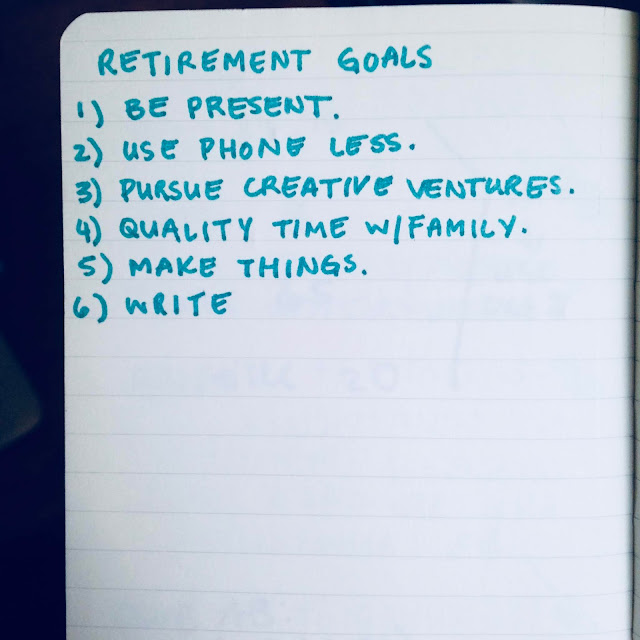 RETIREMENT GOALS
1) BE PRESENT.
2) USE PHONE LESS.
3) PURSUE CREATIVE VENTURES.
4) QUALITY TIME W/FAMILY.
5) MAKE THINGS.
6) WRITE